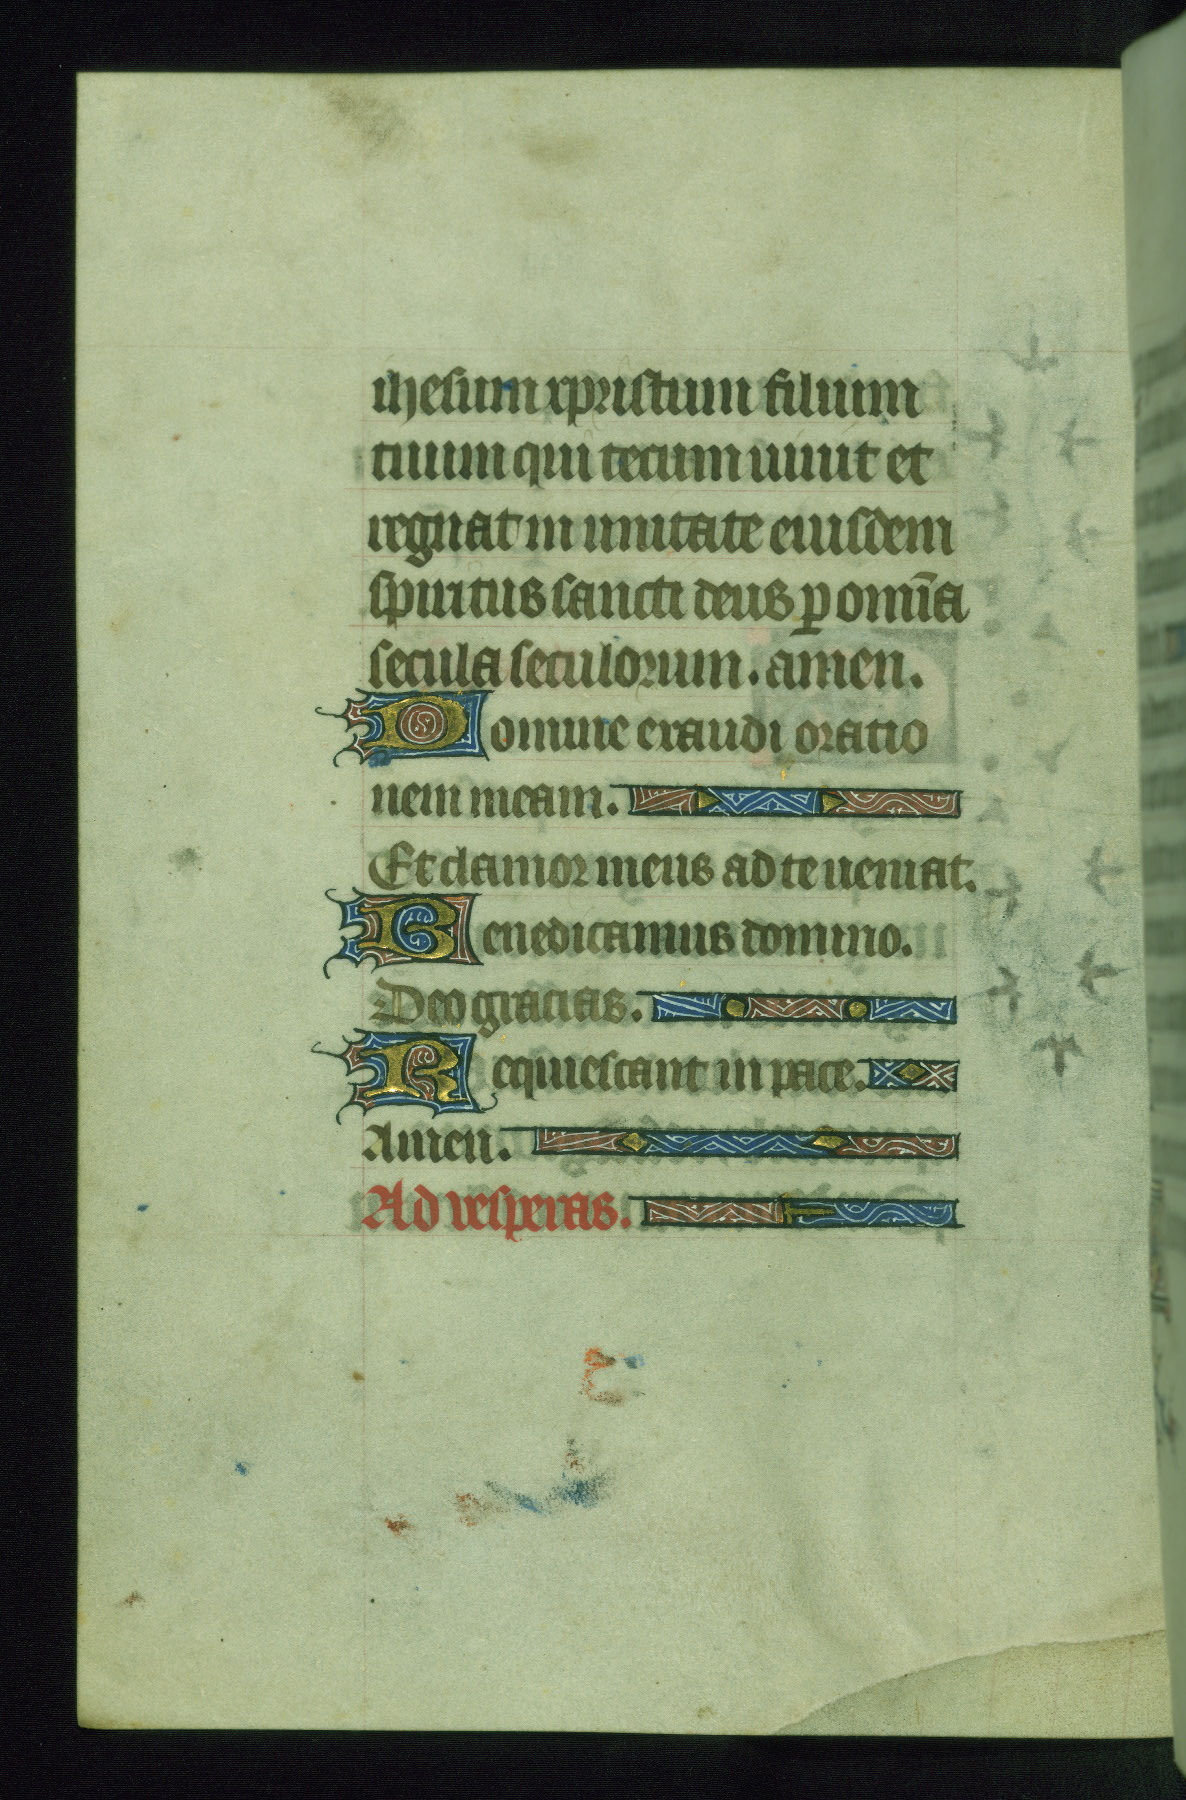 ihesum xpristum filium
tuum qui tecum uiuit et
regnat in unitate eiusdem
spiritus sancti deus p omīa
secula seculorum. amen.
Domine exaudi oratio
nem meam.
Et clamor meus ad te ueniat.
Benedicamus domino.
Deo gracias.
Requiescant in pace.
Amen.
Ad vesperas.